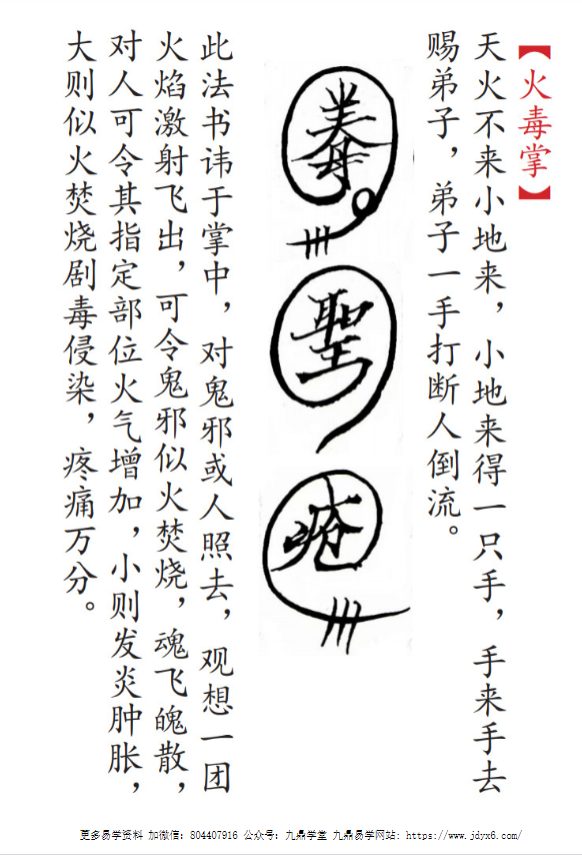 【火毒掌】
天火不来小地来，小地来得一只手，手来手去
赐弟子，弟子一手打断人倒流。
聖
疮
此法书讳于掌中，对鬼邪或人照去，观想一团
火焰激射飞出，可令鬼邪似火焚烧，魂飞魄散，
对人可令其指定部位火气增加，小则发炎肿胀，
大则似火焚烧剧毒侵染，疼痛万分。
更多易学资料 加微信：804407916 公众号：九鼎学堂 九鼎易学网站：https://www.jdyx6.com/